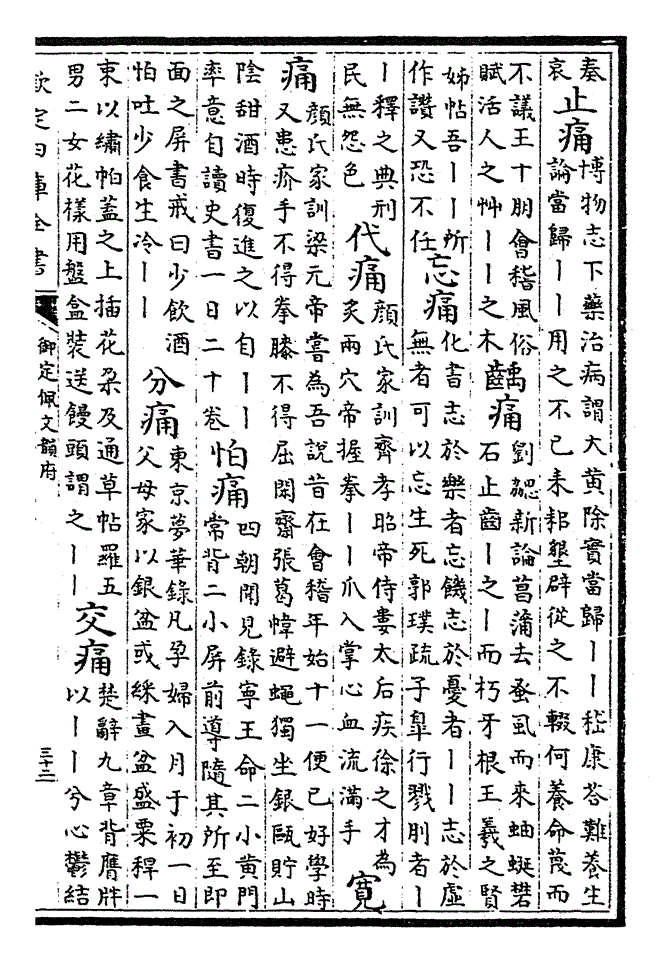 奏哀 止痛 博物志下藥治病謂大黃除實當歸丨丨嵇康答難養生
論當歸丨丨用之不已耒耜墾辟從之不輟何養命蔑而
不議王十朋會稽風俗
賦活人之艸丨丨之木 齲痛 劉勰新論菖蒲去蚤虱而來蚰蜒礬
石止齒丨之丨而朽牙根王羲之賢
姊帖吾丨丨所
作讚又恐不任 忘痛 化書志於樂者忘饑志於憂者丨丨志於虛
無者可以忘生死郭璞疏子臯行戮刖者丨
丨釋之典刑
民無怨色 代痛 顏氏家訓齊孝昭帝侍婁太后疾徐之才為
灸兩穴帝握拳丨丨爪入掌心血流滿手 寛
痛 顏氏家訓梁元帝嘗為吾說昔在會稽年始十一便已好學時
又患疥手不得拳膝不得屈閑齋張葛幃避蠅獨坐銀甌貯山
陰甜酒時復進之以自丨丨
率意自讀史書一日二十卷 怕痛 四朝聞見錄寧王命二小黃門
常背二小屏前導隨其所至即
面之屏書戒曰少飲酒
怕吐少食生冷丨丨 分痛 東京夢華錄凡孕婦入月于初一日
父母家以銀盆或綵畫盆盛粟稈一
束以繡帕蓋之上插花朶及通草帖羅五
男二女花樣用盤盒裝送饅頭謂之丨丨 交痛 楚辭九章背膺牉
以丨丨兮心鬱結
欽定四庫全書
御定佩文韻府
三十二